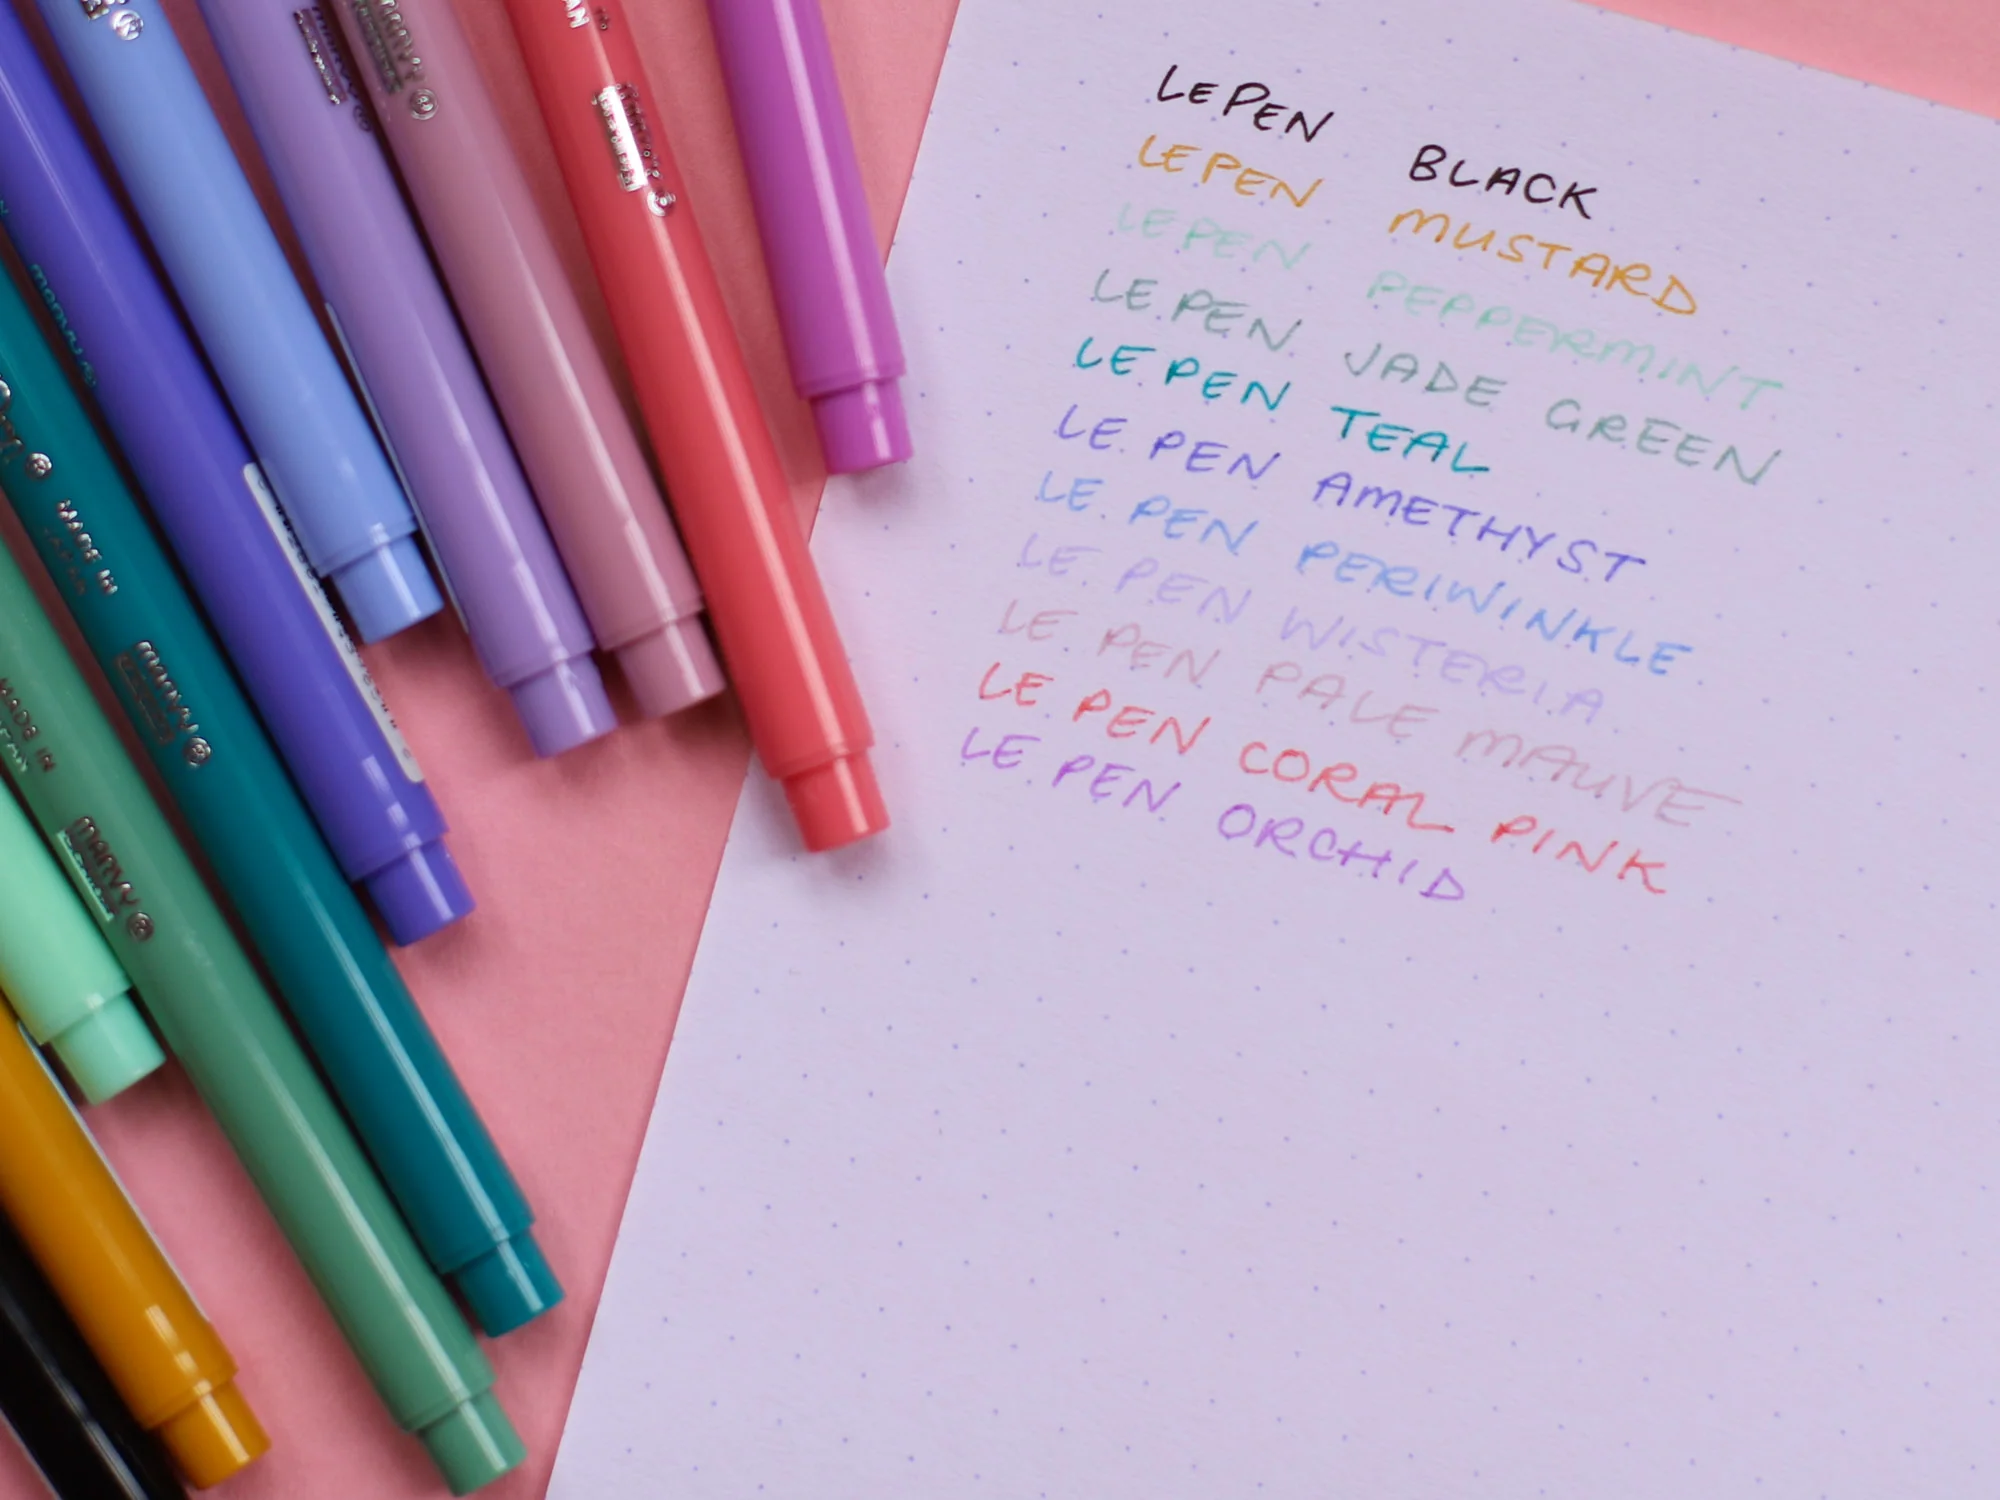 LEPEN BLACK
LEPEN MUSTARD
LEPEN PEPPERMINT
LE PEN JADE GREEN
LE PEN TEAL
LE PEN AMETHYST
LE PEN PERIWINKLE
LE PEN WISTERIA
LE PEN PALE MAUVE
LE PEN CORAL PINK
LE PEN ORCHID
MARVY ®
MADE IN
MARVY ®
MADE IN
MARVY ®